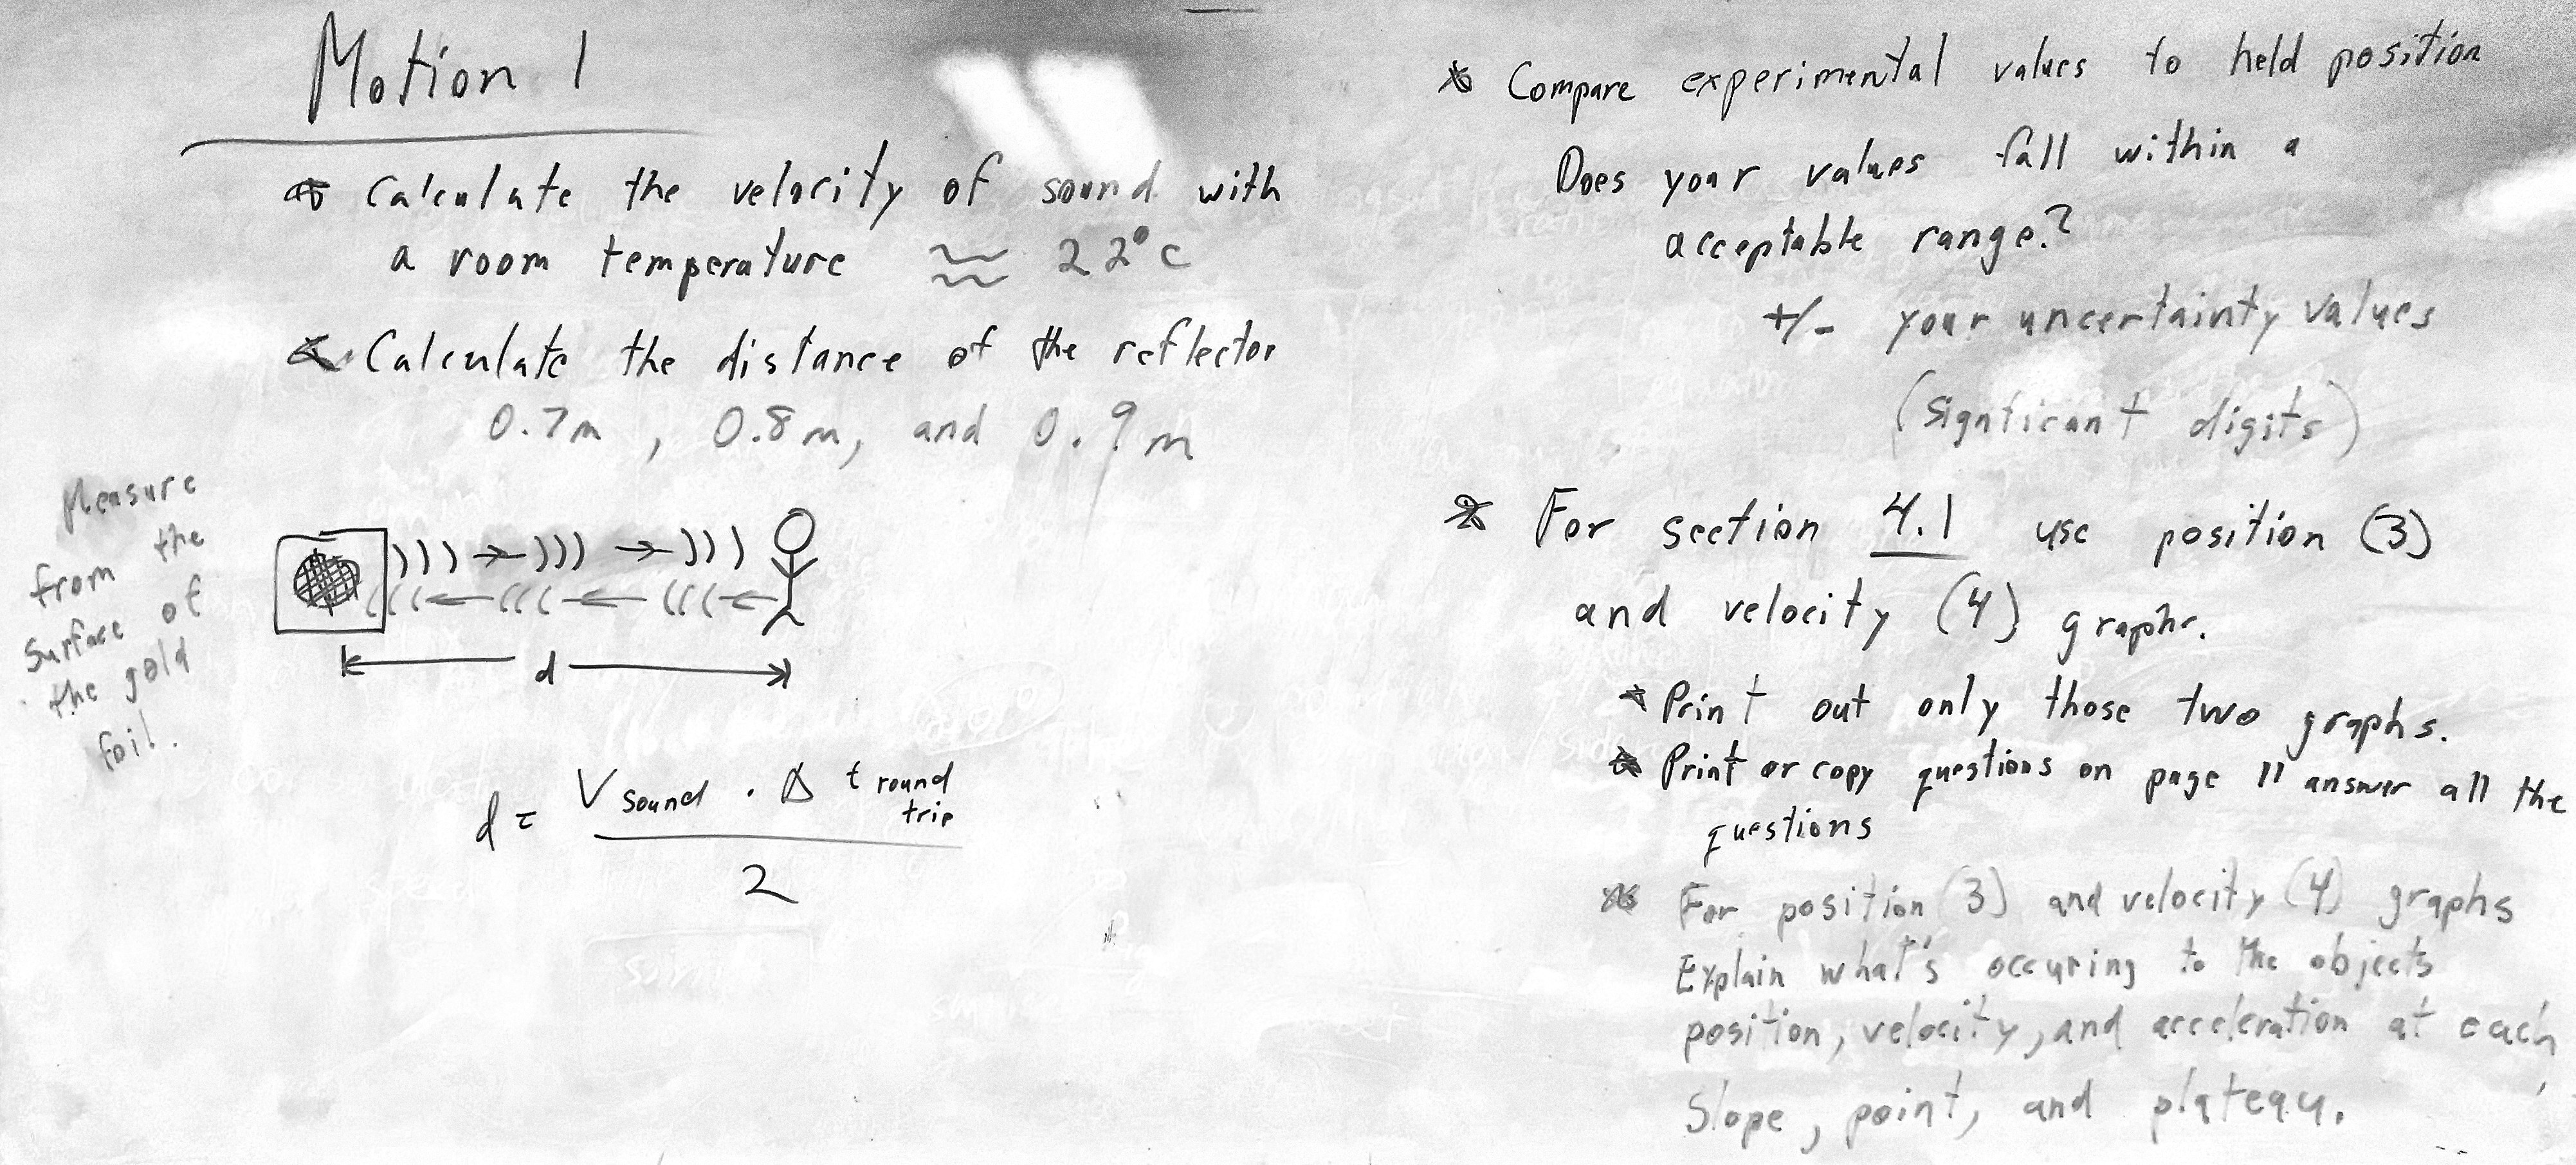 Motion 1
* Calculate the velocity of sound with
a room temperature ≈ 22°C
* Calculate the distance of the reflector
0.7m, 0.8m, and 0.9m
Measure
from the
surface of
the gold
foil.
d
d = V sound · Δ t round trip
2
* Compare experimental values to held position
Does your values fall within a
acceptable range?
+/- your uncertainty values
(signficant digits)
* For section 4.1 use position (3)
and velocity (4) graphs.
* Print out only those two graphs.
* Print or copy questions on page 11 answer all the
questions
* For position (3) and velocity (4) graphs
Explain what's occuring to the objects
position, velocity, and acceleration at each
slope, point, and plateau.